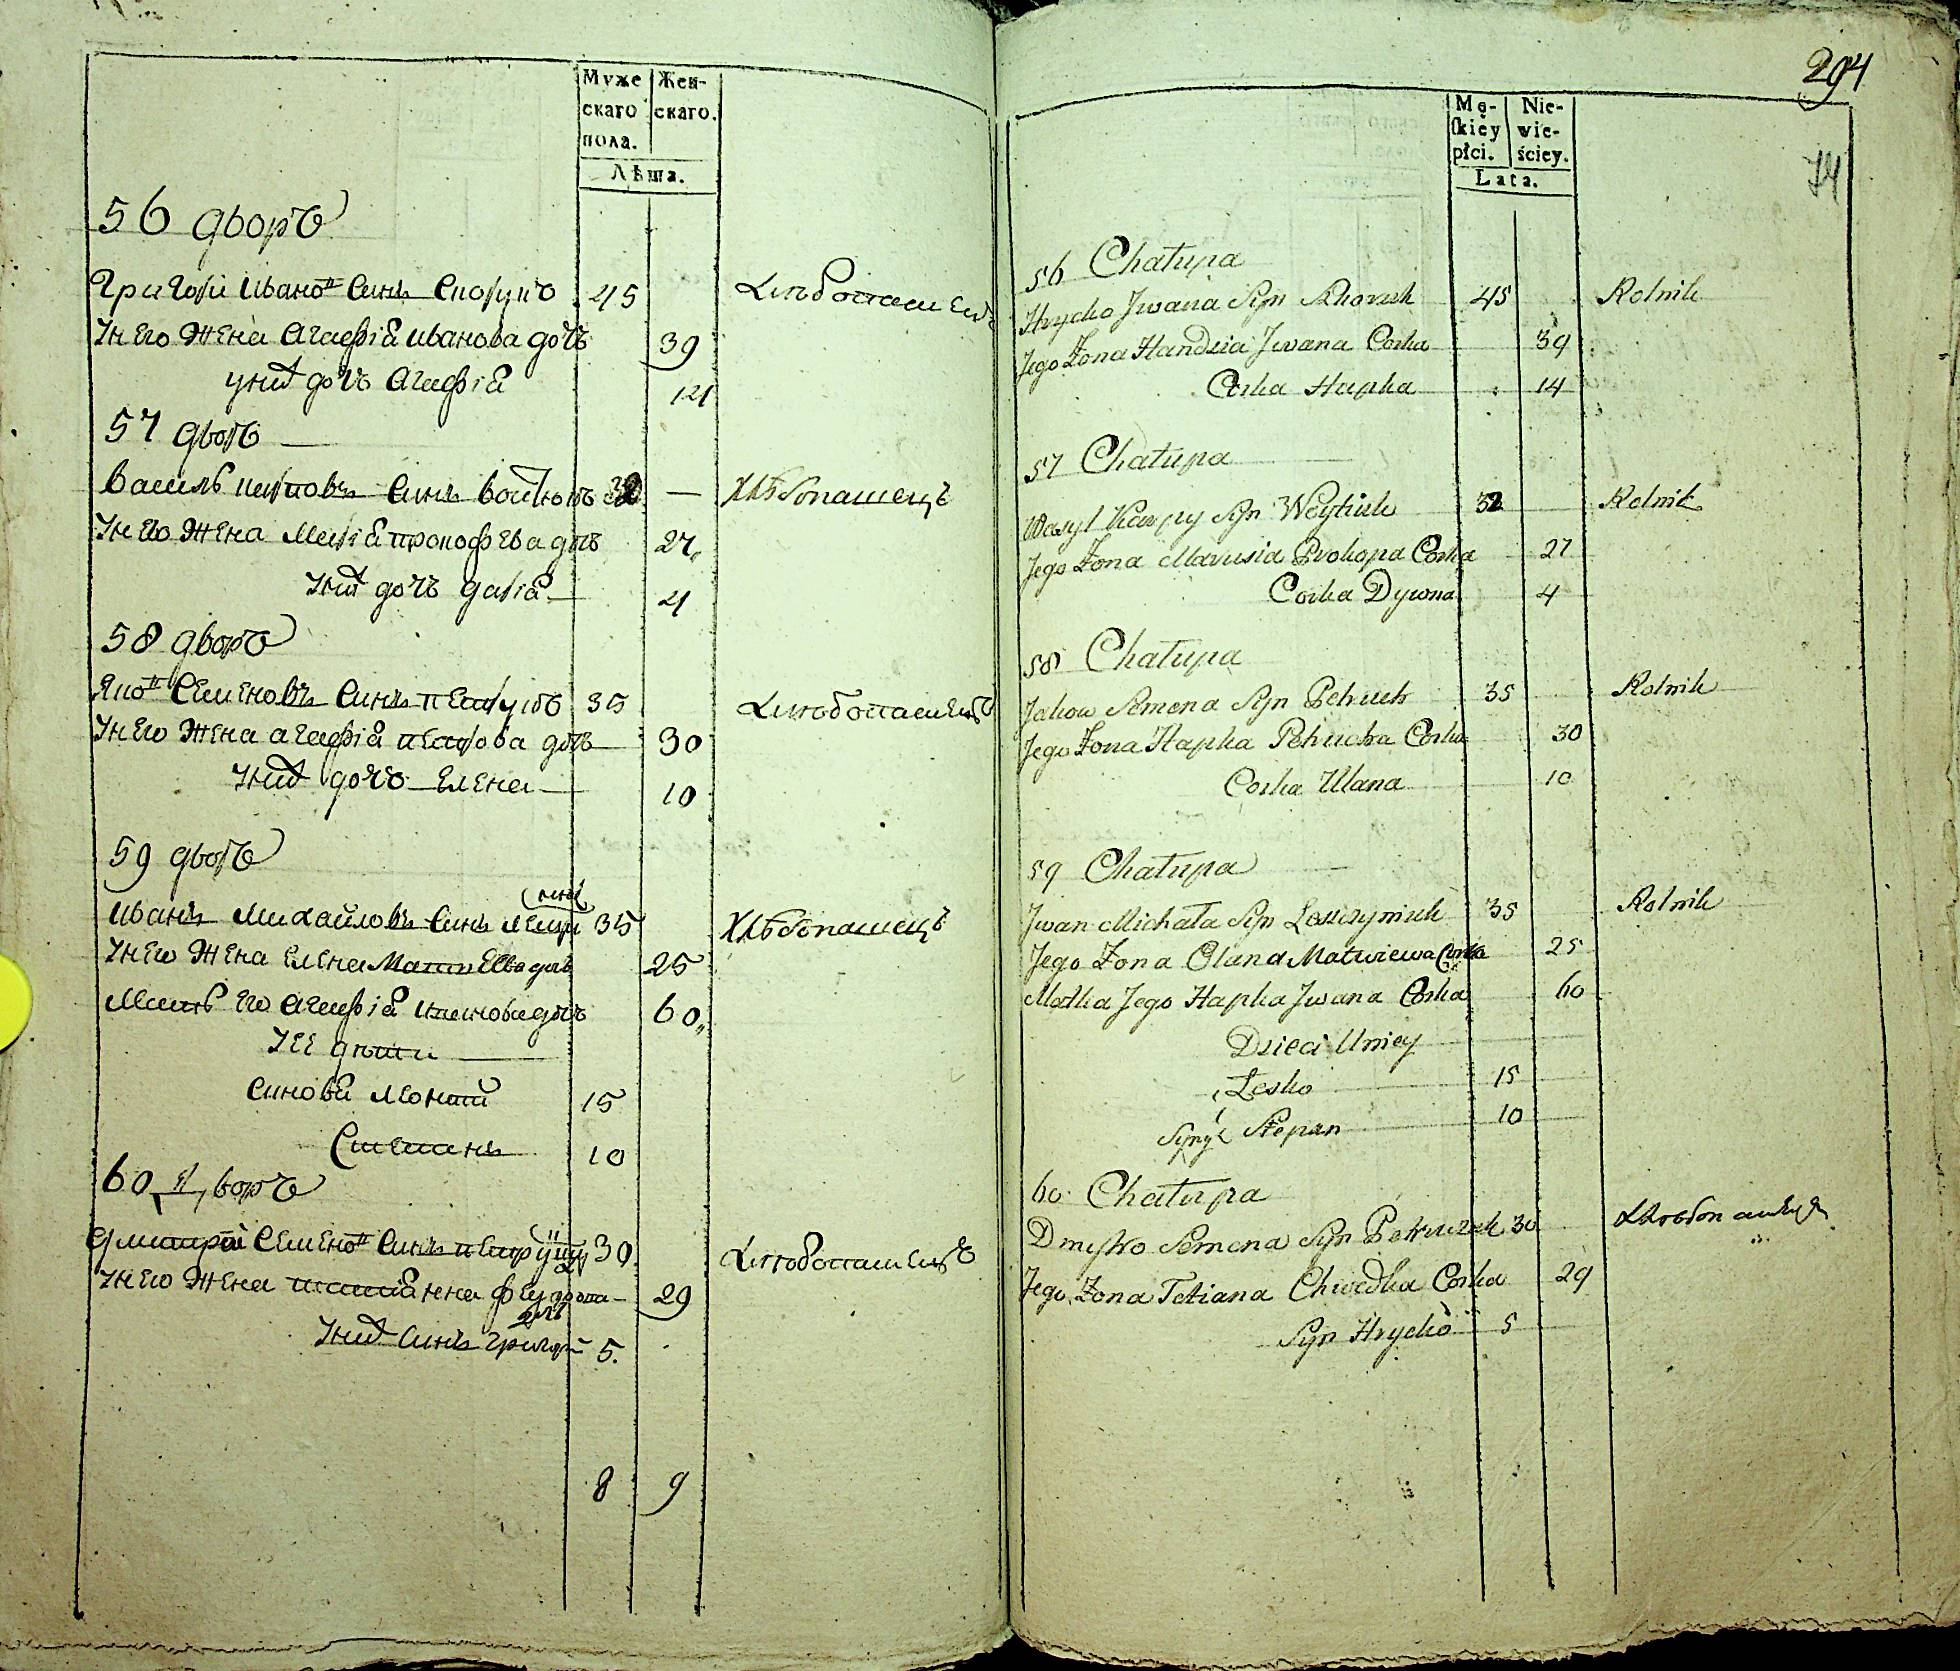 Муже Жен-
скаго скаго.
пола.
Лѣта.
56 дворъ
Григори Ивано Синъ 45 Хлебопашецъ
У Него Жена Агафія иванова дочъ 39
У них дочъ Агафія 14
57 дворъ
Василь Синъ 32 — Хлѣбопашецъ
У Него Жена Марія прокофева дочъ 27
У них дочъ Дарія 4
58 дворъ
Яко Семеновъ Синъ 35 Хлебопашецъ
У Него Жена Агафія петрова дочъ 30
У них дочъ Елена 10
59 дворъ
Иванъ Михайловъ Синъ 35 Хлѣбопашецъ
У Него Жена Елена Матвеева дочъ 25
Мать Его Агафія иванова дочъ 60
У Ее дѣти
Синови Леонти 15
Степанъ 10
60 Дворъ
Дмитрей Семено Синъ 30 Хлебопашецъ
У Него Жена 29
У них Синъ Григорі 5.
8 9
294
Mę- Nie-
ſkiéy wie-
płci. ściey.
Lata.
14
56 Chałupa
Hrycko Jwana Syn 45 Rolnik
Jego Żona Handzia Jwana Corka 39
Corka Hapka 14
57 Chałupa
Wasyl Karpy Syn Woytiuk 32 Rolnik
Jego Żona Marusia Prokopa Corka 27
Corka Dywna 4
58 Chałupa
Jakow Semena Syn Petruk 35 Rolnik
Jego Żona Hapka Corka 30
Corka Ulana 10
59 Chałupa
Jwan Michała Syn 35 Rolnik
Jego Żona Olana Matwiewa Corka 25
Matka Jego Hapka Jwana Corka 60
Dzieci Uniey
Lesko 15
Syny Stepan 10
60 Chałupa
Dmytro Semena Syn Petruczek 30
Jego Żona Tetiana Chwedka Corka 29
Syn Hrycko 5